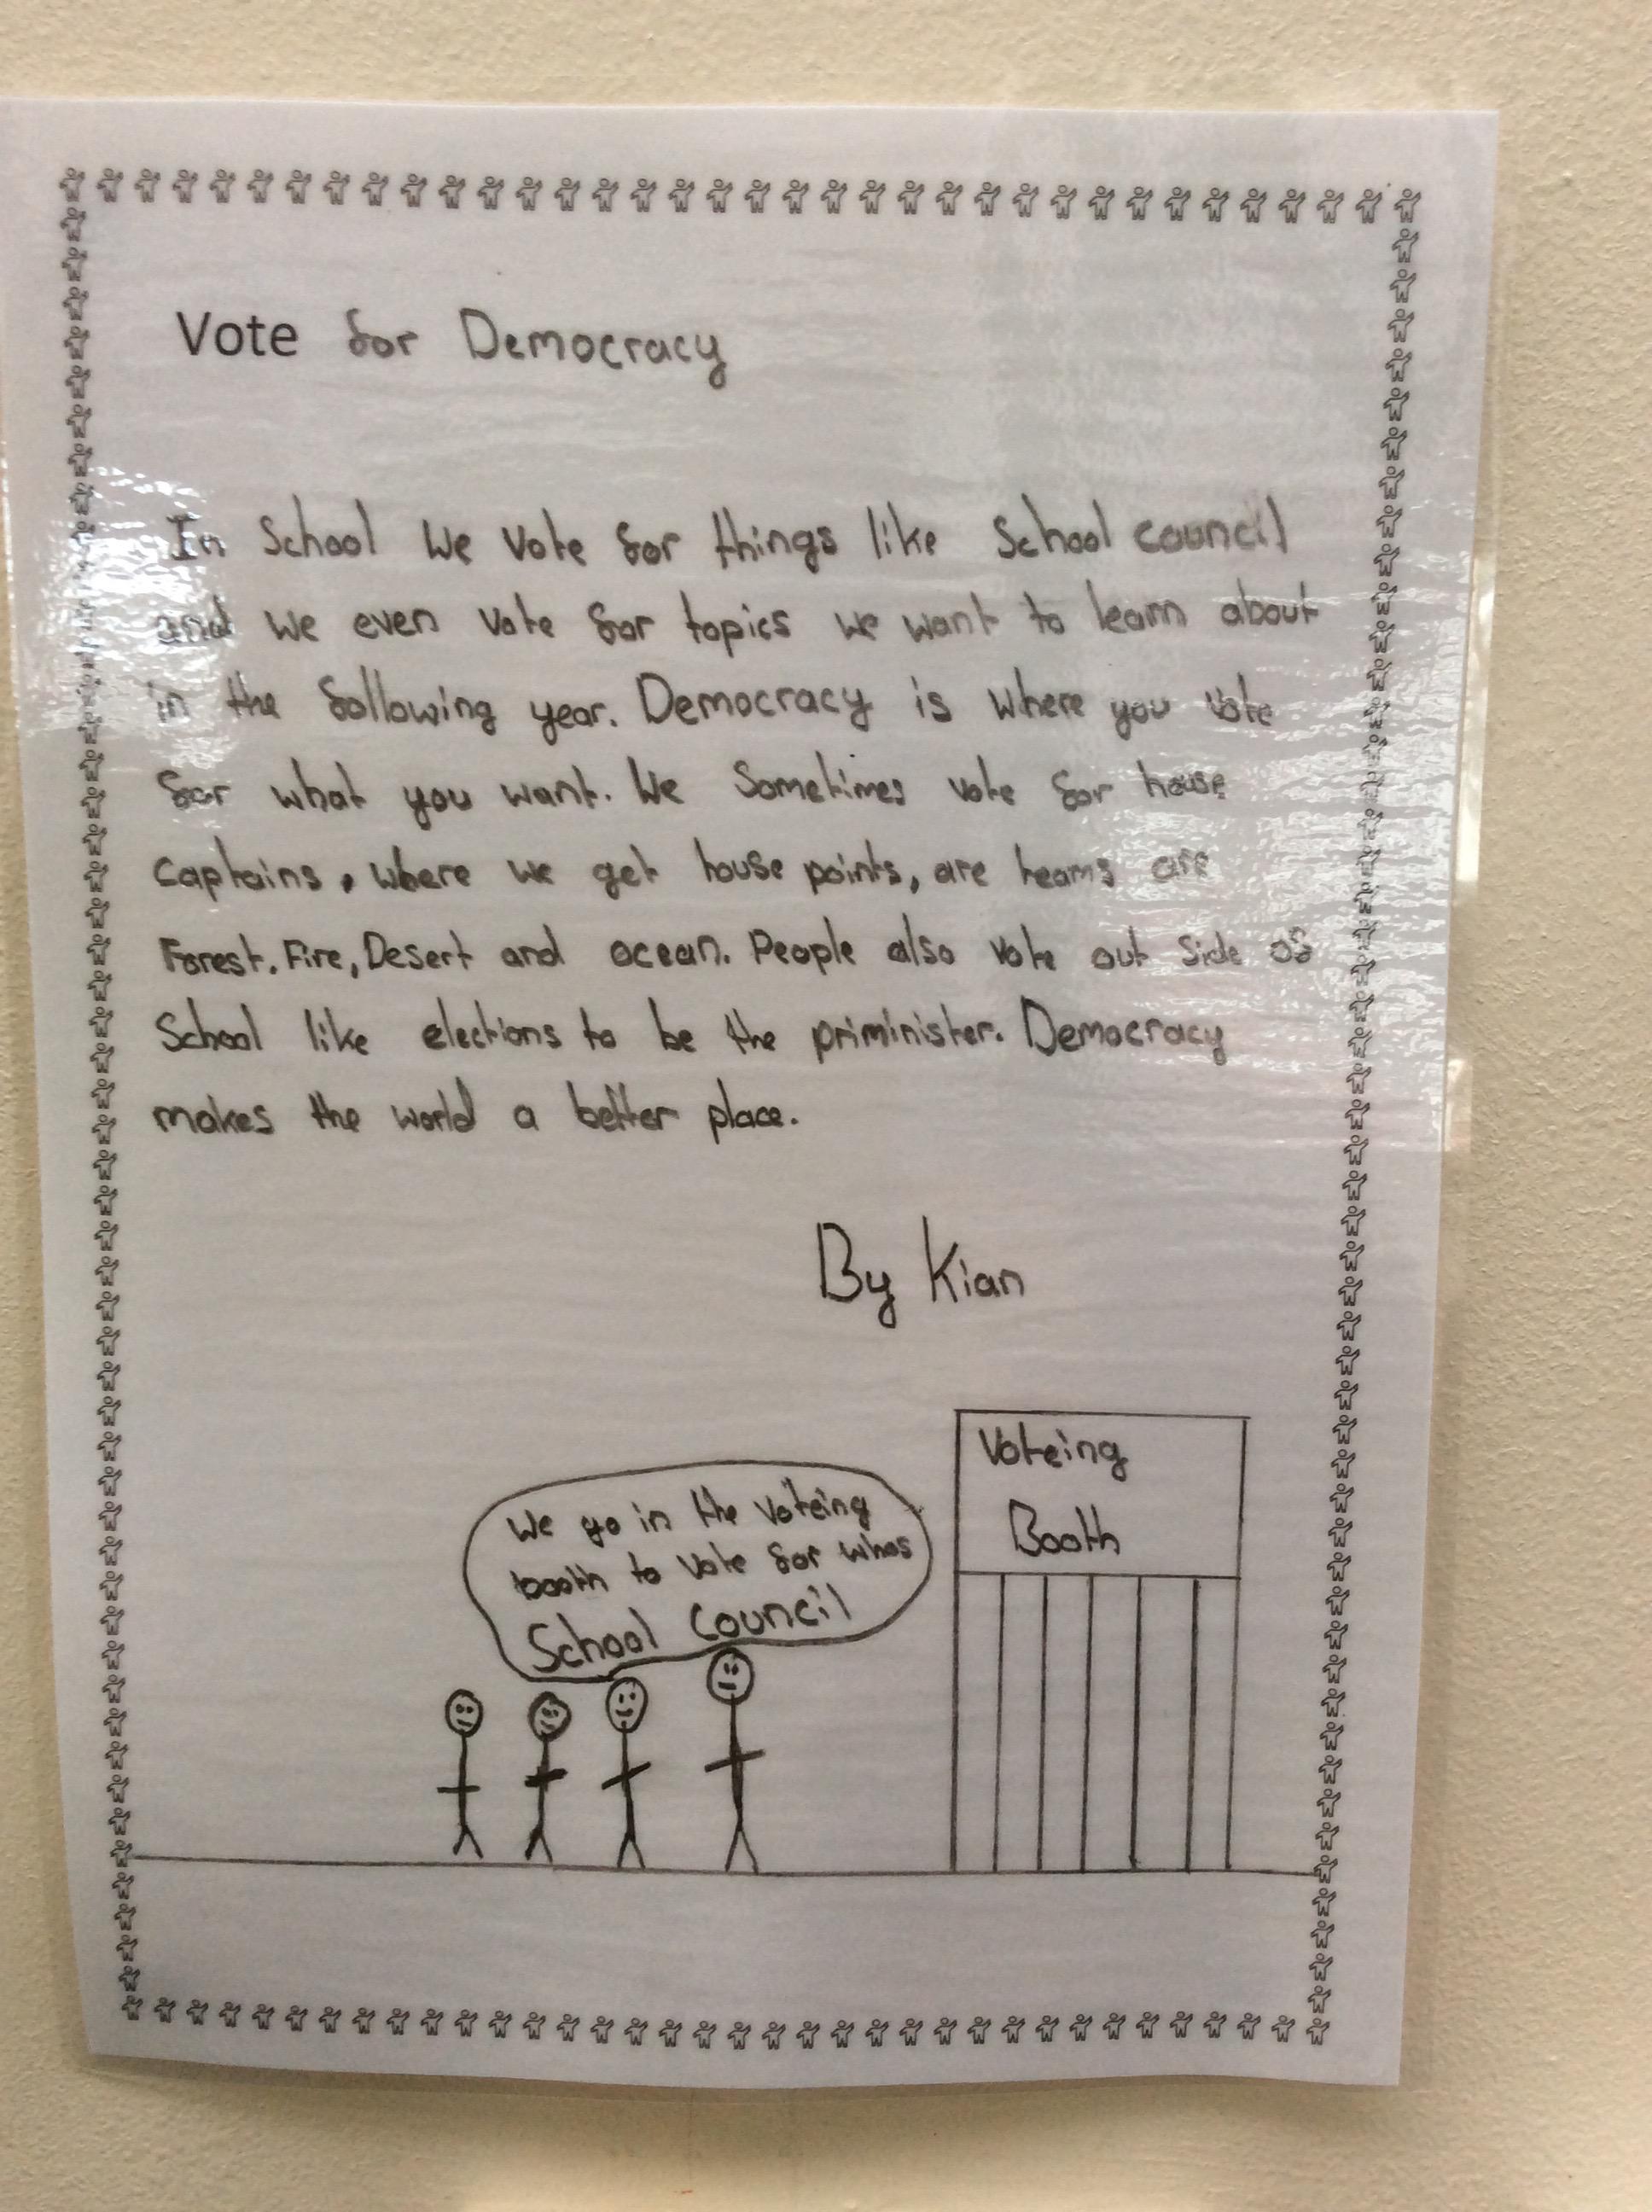 Vote for Democracy
In School We Vote for things like School council
and we even vote for topics we want to learn about
in the following year. Democracy is where you vote
for what you want. We Sometimes vote for house
captains, where we get house points, are teams are
Forest, Fire, Desert and ocean. People also vote out side of
School like elections to be the priminister. Democracy
makes the world a better place.
By Kian
Voteing
Booth
We go in the voteing
booth to vote for whos
School Council